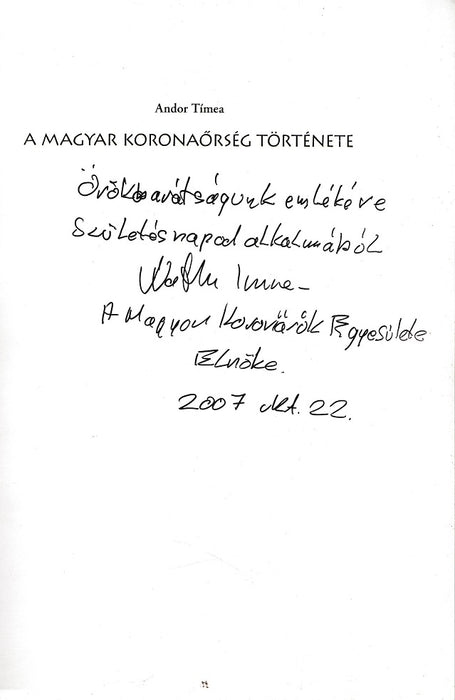 Andor Tímea
A MAGYAR KORONAŐRSÉG TÖRTÉNETE
Örök barátságunk emlékéve
Születésnapod alkalmából
Imre
A Magyar Koronaőrök Egyesülete
Elnöke.
2007 okt. 22.